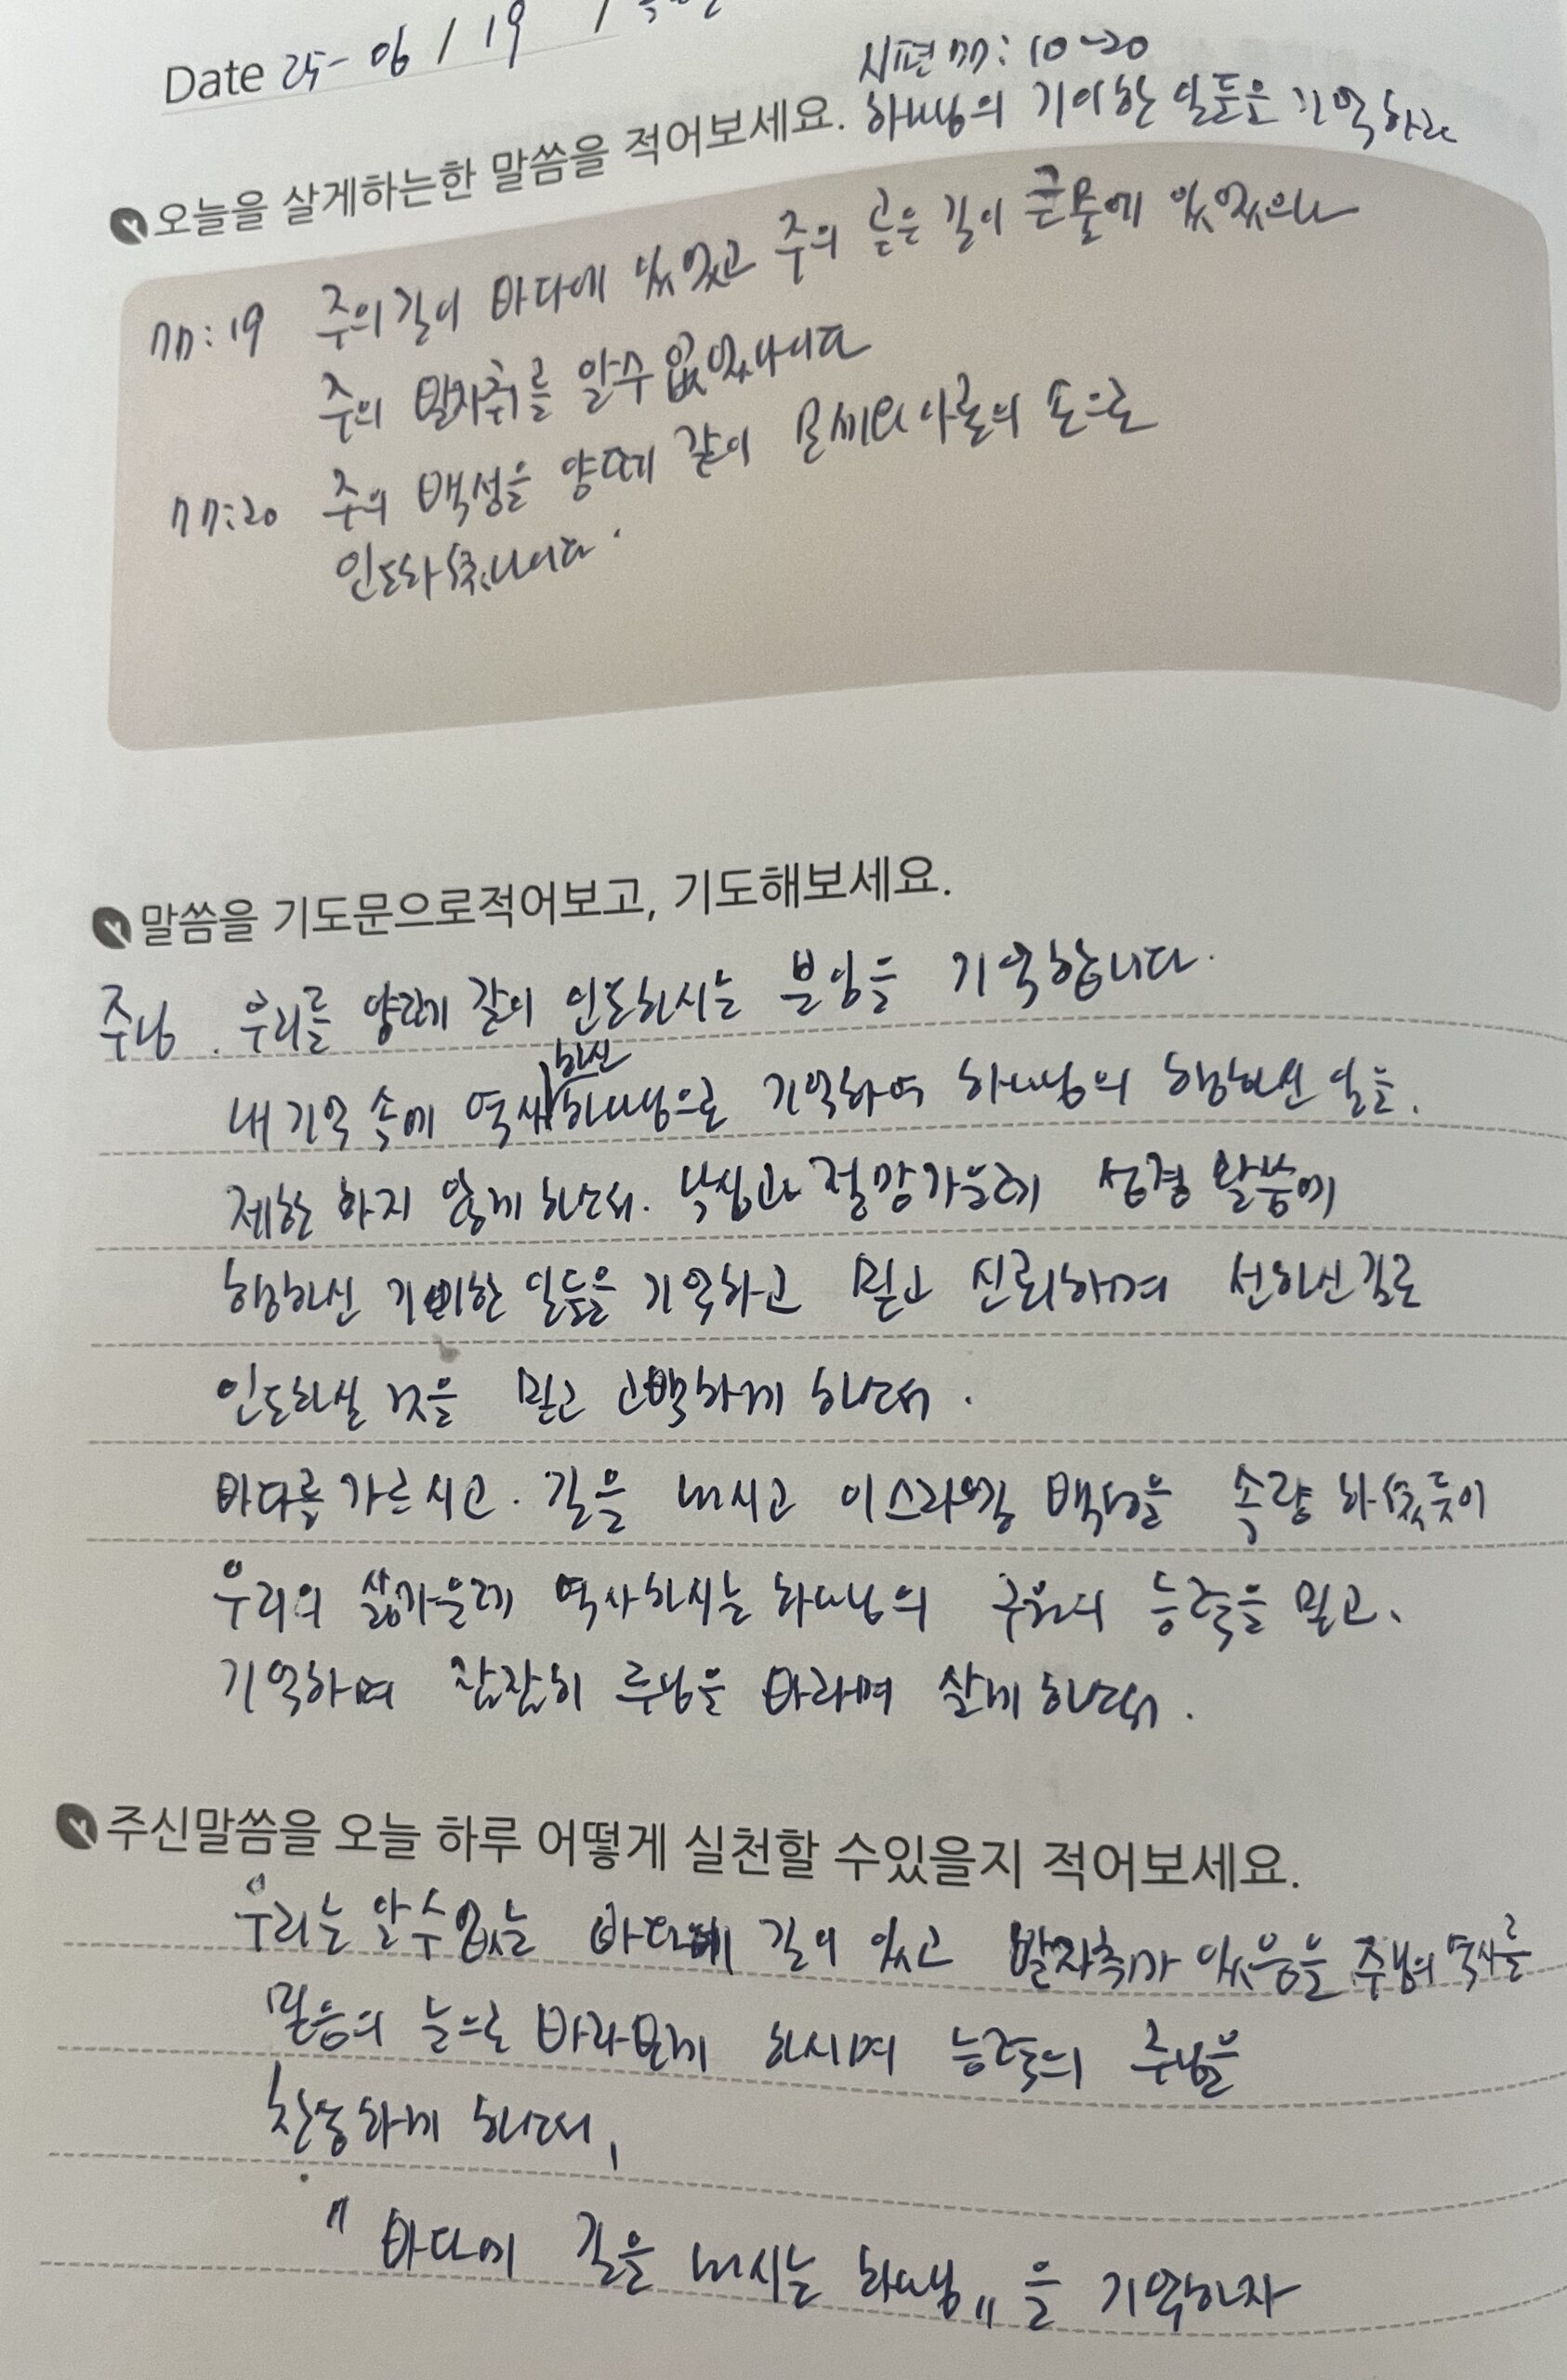 Date 25- 06 / 19 /
시편 77: 10-20
오늘을 살게하는한 말씀을 적어보세요. 하나님의 기이한 일들을 기억하라
77:19 주의 길이 바다에 있었고 주의 곧은 길이 큰 물에 있었으나
주의 발자취를 알수 없었나이다
77:20 주의 백성을 양떼 같이 모세와 아론의 손으로
인도하셨나이다.
말씀을 기도문으로적어보고, 기도해보세요.
주님. 우리를 양떼 같이 인도하시는 분임을 기억합니다.
하신
내 기억 속에 역사 하나님으로 기억하여 하나님의 행하신 일들.
제한 하지 않게 하소서. 낙심과 절망가운데 성경 말씀에
행하신 기이한 일들을 기억하고 믿고 신뢰하며 선하신길로
인도하실 것을 믿고 고백하게 하소서.
바다를 가르시고. 길을 내시고 이스라엘 백성을 속량 하셨듯이
우리의 삶가운데 역사하시는 하나님의 구원의 능력을 믿고.
기억하며 잠잠히 주님을 바라며 살게 하소서.
주신말씀을 오늘 하루 어떻게 실천할 수있을지 적어보세요.
우리는 알수없는 바다에 길이 있고 발자취가 있음을 주님의 역사를
믿음의 눈으로 바라보게 하시며 능력의 주님을
찬송하게 하소서,
" 바다에 길을 내시는 하나님 " 을 기억하자